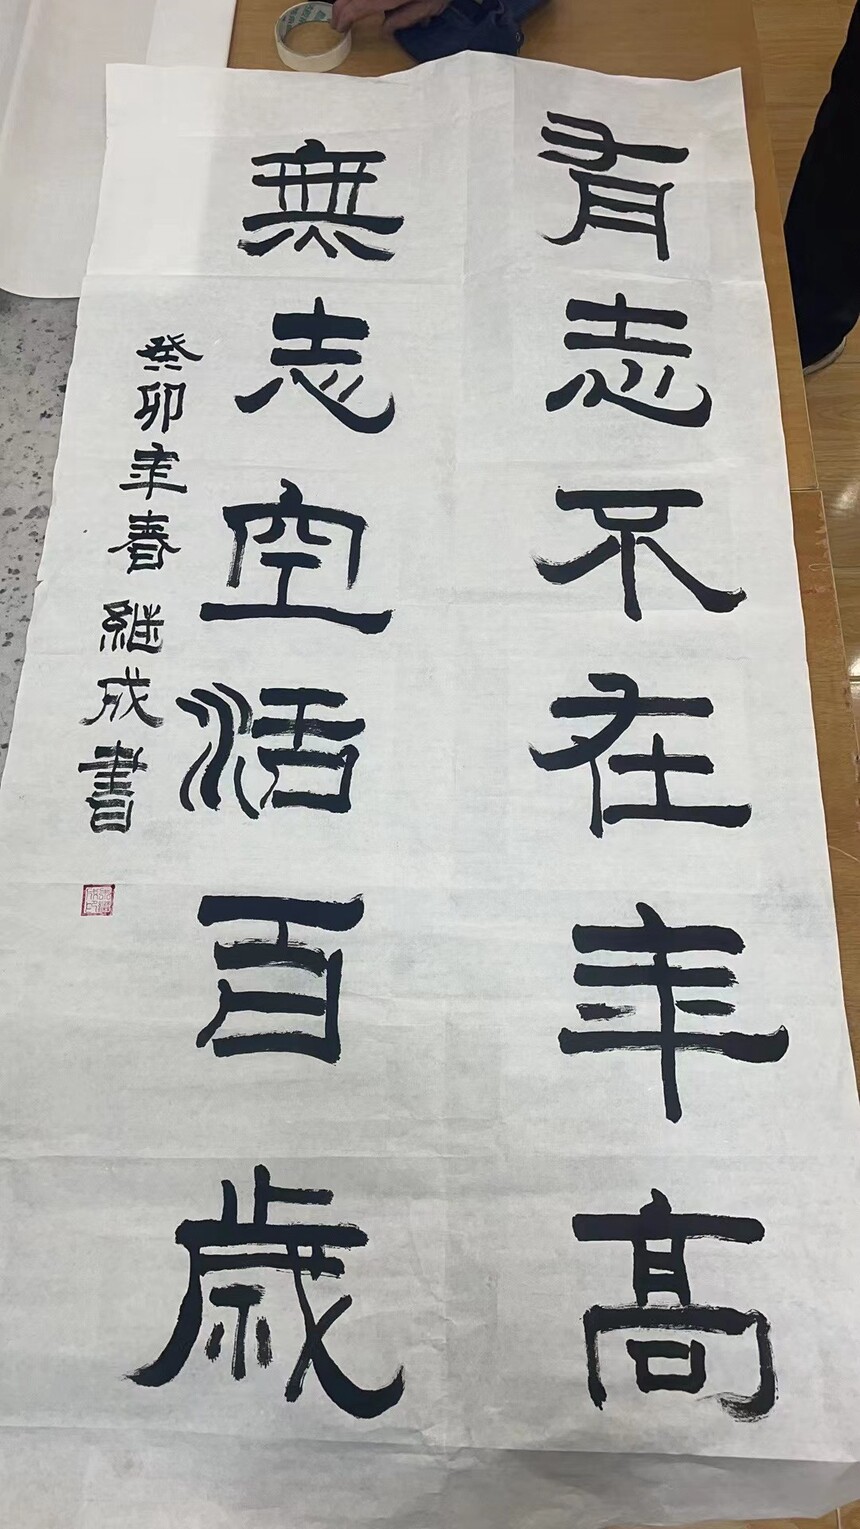 有志不在年高
無志空活百歲
癸卯年春 继成書